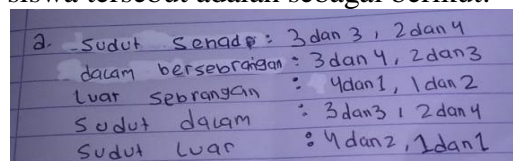 siswa tersebut adalah sebagai berikut:
a. - Sudut Senada : 3 dan 3, 2 dan 4
dalam bersebrangan : 3 dan 4, 2 dan 3
luar sebrangan : 4 dan 1, 1 dan 2
Sudut dalam : 3 dan 3, 2 dan 4
Sudut luar : 4 dan 2, 1 dan 1